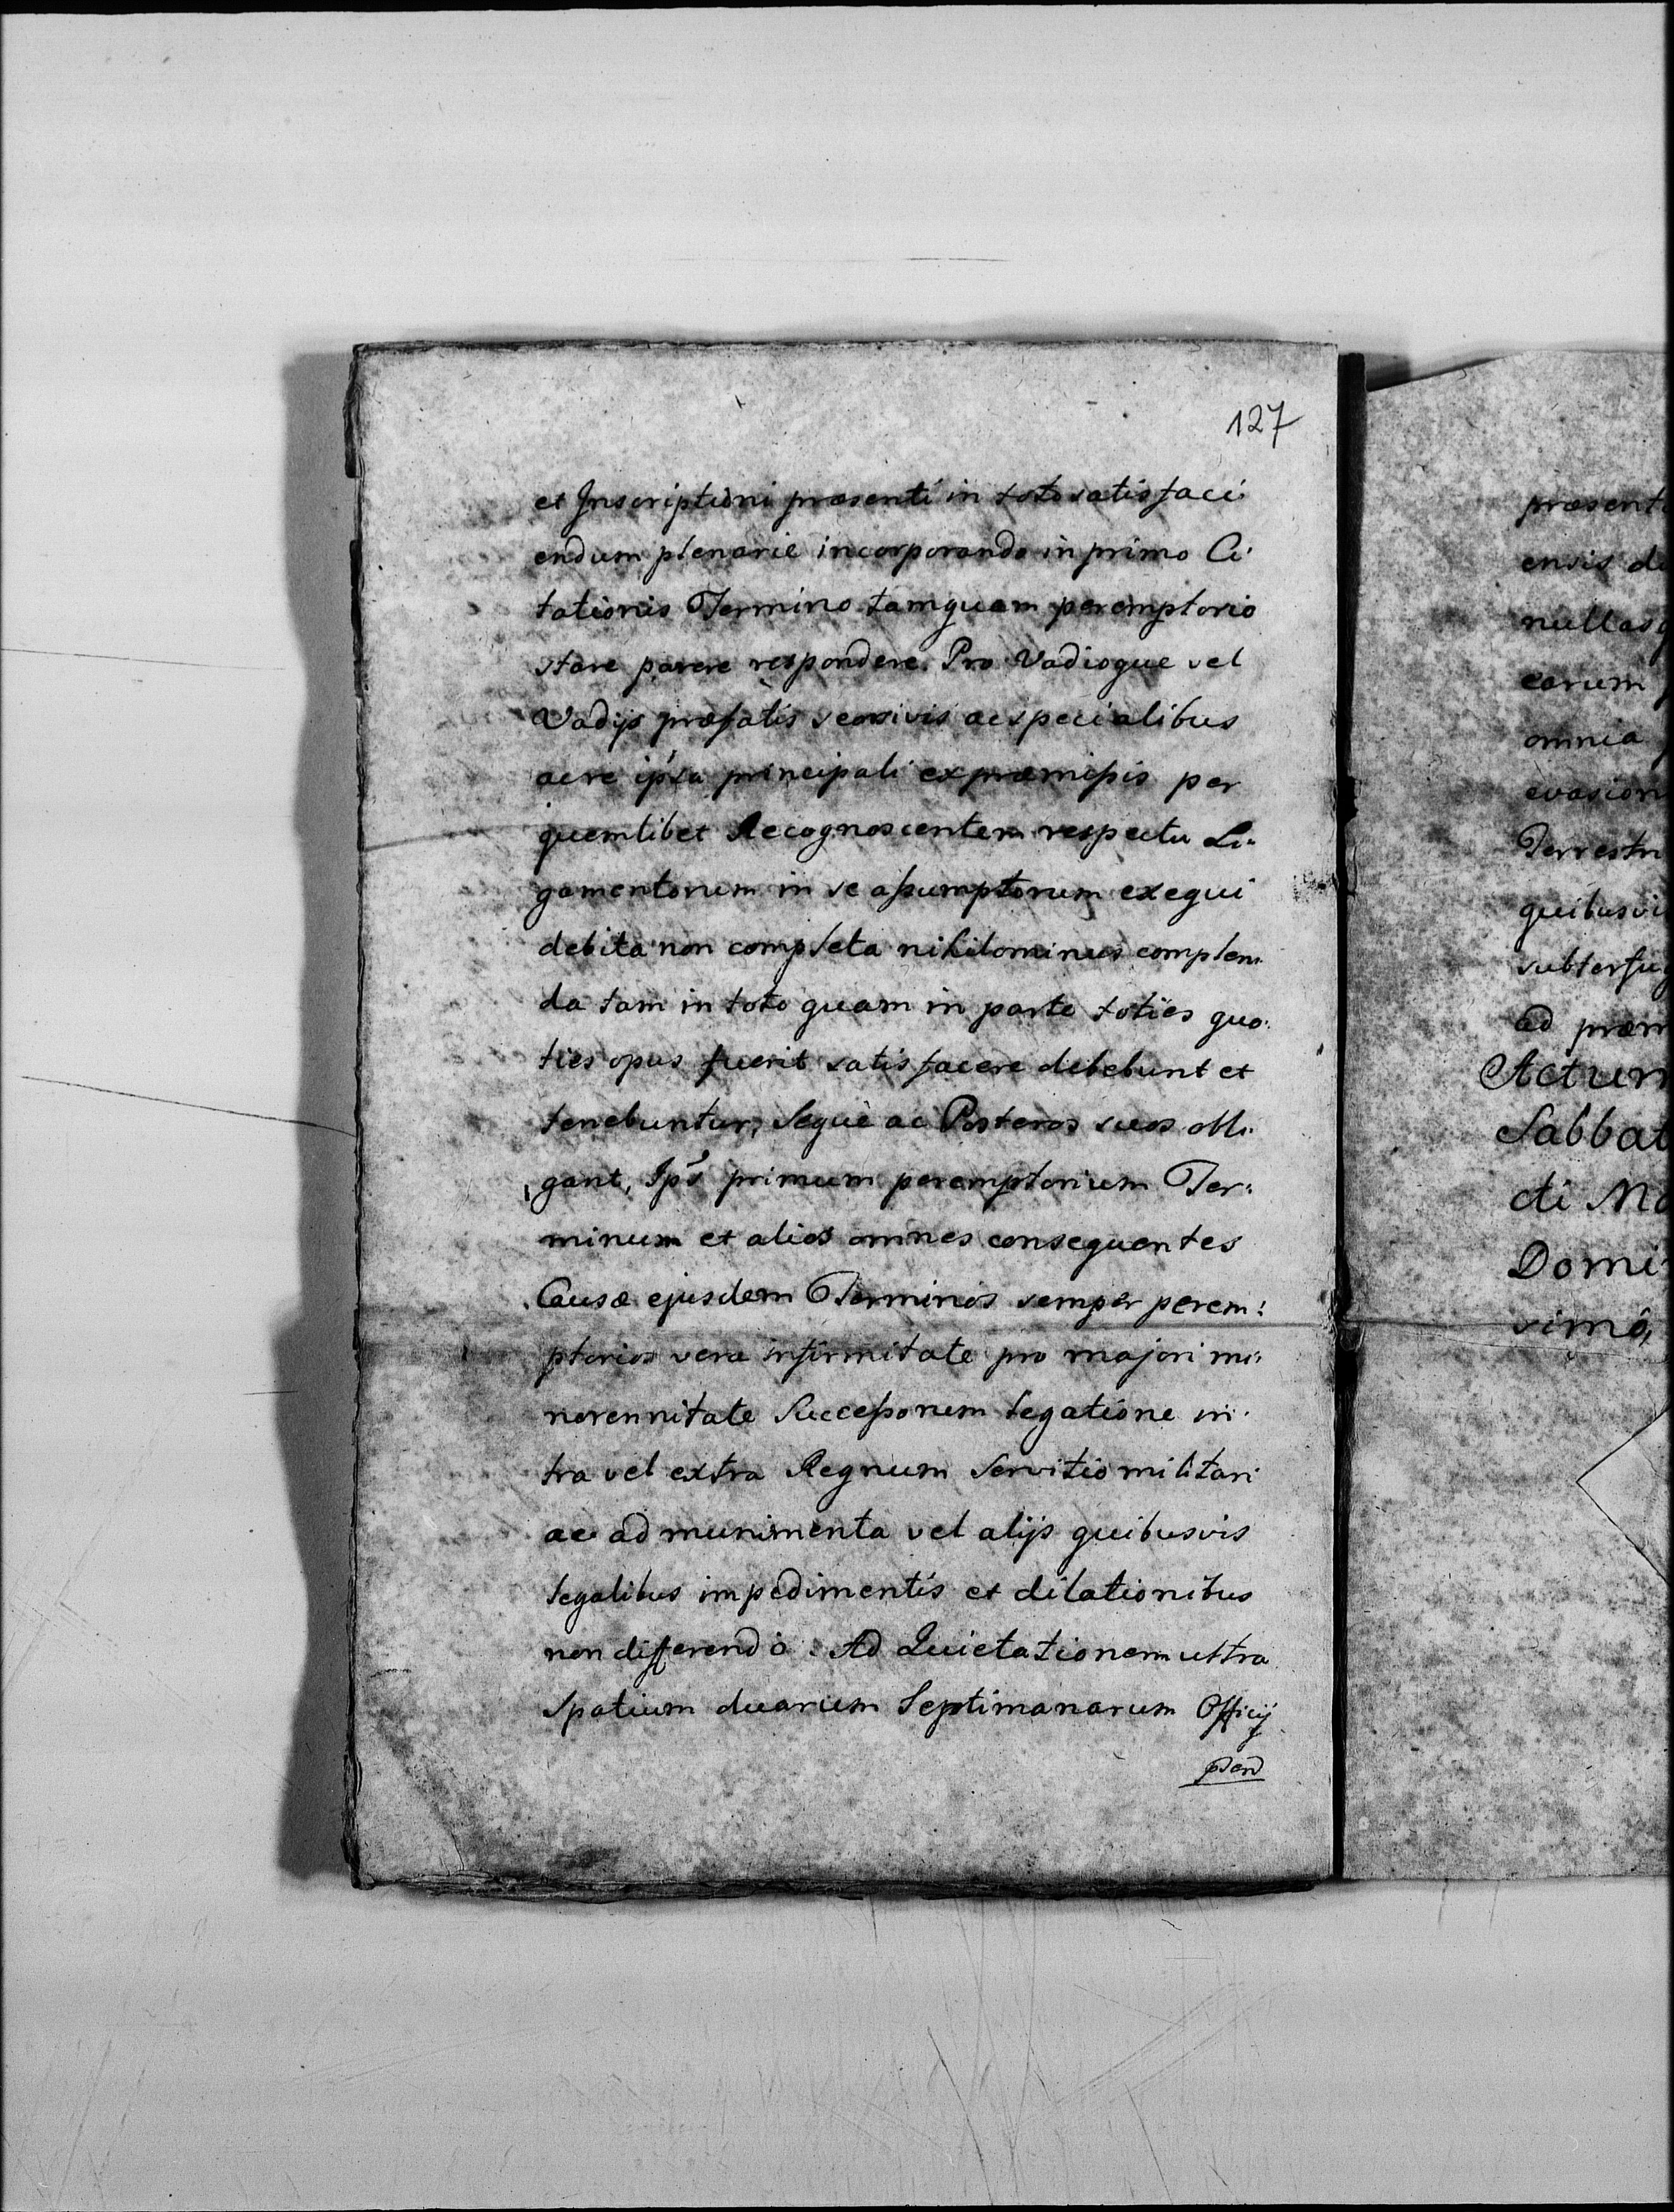 127
et Inscriptioni præsenti in toto satisfaci¬
endum plenarie incorporando in primo Ci¬
tationis Termino tamquam peremptorio
stare parere respondere. Pro Vadioque vel
Vadijs præfatis seorsivis ac specialibus
ac re ipsa principali ex præmissis per
quemlibet Recognoscentem respectu Li¬
gamentorum in se assumptorum exequi
debita non completa nihilominus complen¬
da tam in toto quam in parte toties quo¬
ties opus fuerit satisfacere debebunt et
tenebuntur, seque ac Posteros suos obli¬
gant, primum peremptorium Ter¬
minum et alios omnes consequentes
Causæ ejusdem Terminos semper perem¬
ptorios vera infirmitate pro majori mi¬
norennitate Successorum legatione in¬
tra vel extra Regnum Servitio militari
ac ad munimenta vel alijs quibusvis
legalibus impedimentis et dilationibus
non differendo. Ad Quietationem ultra
Spatium duarum Septimanarum Officij
præsent
ensis d
nullasq
earum
omnia
evasion
Terrestri
quibusvi
subterfug
ad præm
Actum
Sabbat
cti Ma
Domi
simô,